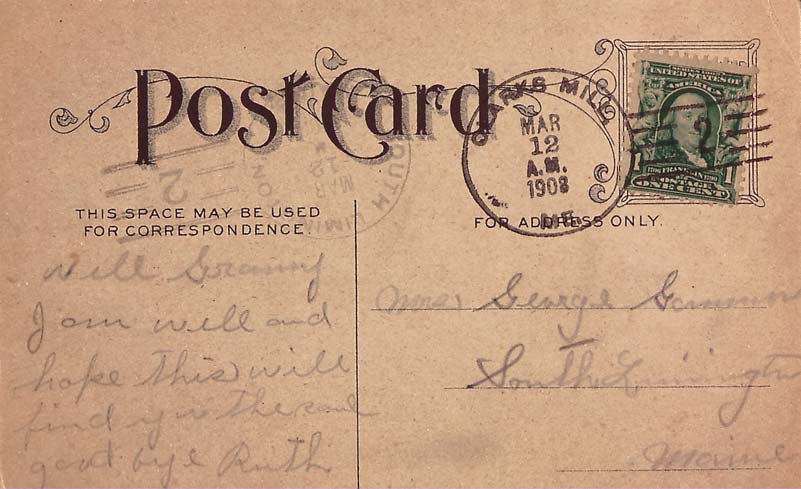 Post Card
CLARKS MILL
MAR
12
A.M.
1908
ME.
SERIES 1902
UNITED STATES OF
AMERICA
1706 FRANKLIN 1790
POSTAGE
1 1
ONE CENT
2
SOUTH LIMIN
MAR
12
2
THIS SPACE MAY BE USED
FOR CORRESPONDENCE.
FOR ADDRESS ONLY.
Well Granny
I am well and
hope this will
find you the same
good bye Ruth
Mrs George Gammon
South Limington
Maine